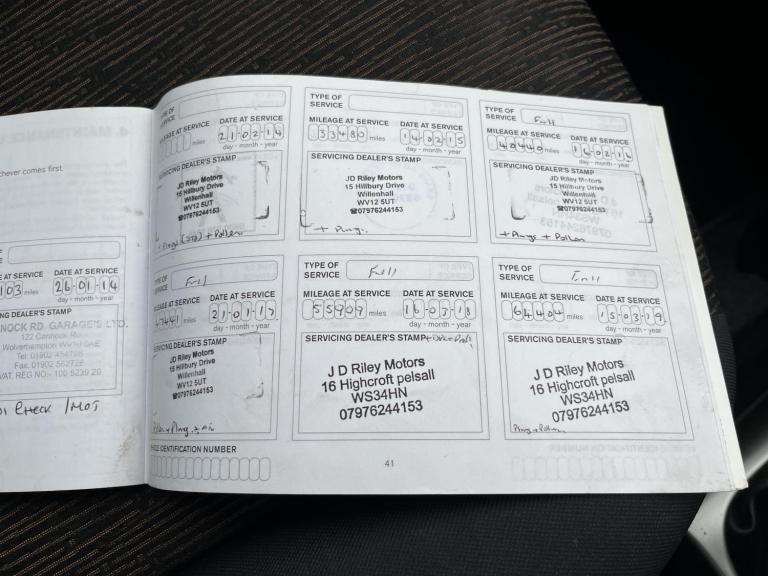 chever comes first.
AT SERVICE DATE AT SERVICE
103 miles 26-01-14
day - month - year
NG DEALER'S STAMP
NNOCK RD. GARAGES LTD.
122 Cannock Road
Wolverhampton
Tel: 01902
Fax: 01902 562726
VAT. REG NO:- 100 5239 20
CHECK / MOT
TYPE OF
SERVICE
MILEAGE AT SERVICE DATE AT SERVICE
miles 21-02-14
day - month - year
SERVICING DEALER'S STAMP
JD Riley Motors
15 Hillbury Drive
Willenhall
WV12 5UT
☎07976244153
+ Pollen
TYPE OF
SERVICE
MILEAGE AT SERVICE DATE AT SERVICE
33480 miles 14-02-15
day - month - year
SERVICING DEALER'S STAMP
JD Riley Motors
15 Hillbury Drive
Willenhall
WV12 5UT
☎07976244153
+ Plug.
TYPE OF
SERVICE Full
MILEAGE AT SERVICE DATE AT SERVICE
40440 miles 16-02-16
day - month - year
SERVICING DEALER'S STAMP
JD Riley Motors
15 Hillbury Drive
Willenhall
WV12 5UT
☎07976244153
+ Plugs + Pollen
TYPE OF
SERVICE Full
MILEAGE AT SERVICE DATE AT SERVICE
47441 miles 21-01-17
day - month - year
SERVICING DEALER'S STAMP
JD Riley Motors
15 Hillbury Drive
Willenhall
WV12 5UT
☎07976244153
TYPE OF
SERVICE Full
MILEAGE AT SERVICE DATE AT SERVICE
55909 miles 16-03-18
day - month - year
SERVICING DEALER'S STAMP
J D Riley Motors
16 Highcroft pelsall
WS34HN
07976244153
TYPE OF
SERVICE Full
MILEAGE AT SERVICE DATE AT SERVICE
64404 miles 15-03-19
day - month - year
SERVICING DEALER'S STAMP
J D Riley Motors
16 Highcroft pelsall
WS34HN
07976244153
Plug + Pollen
HICLE IDENTIFICATION NUMBER
41